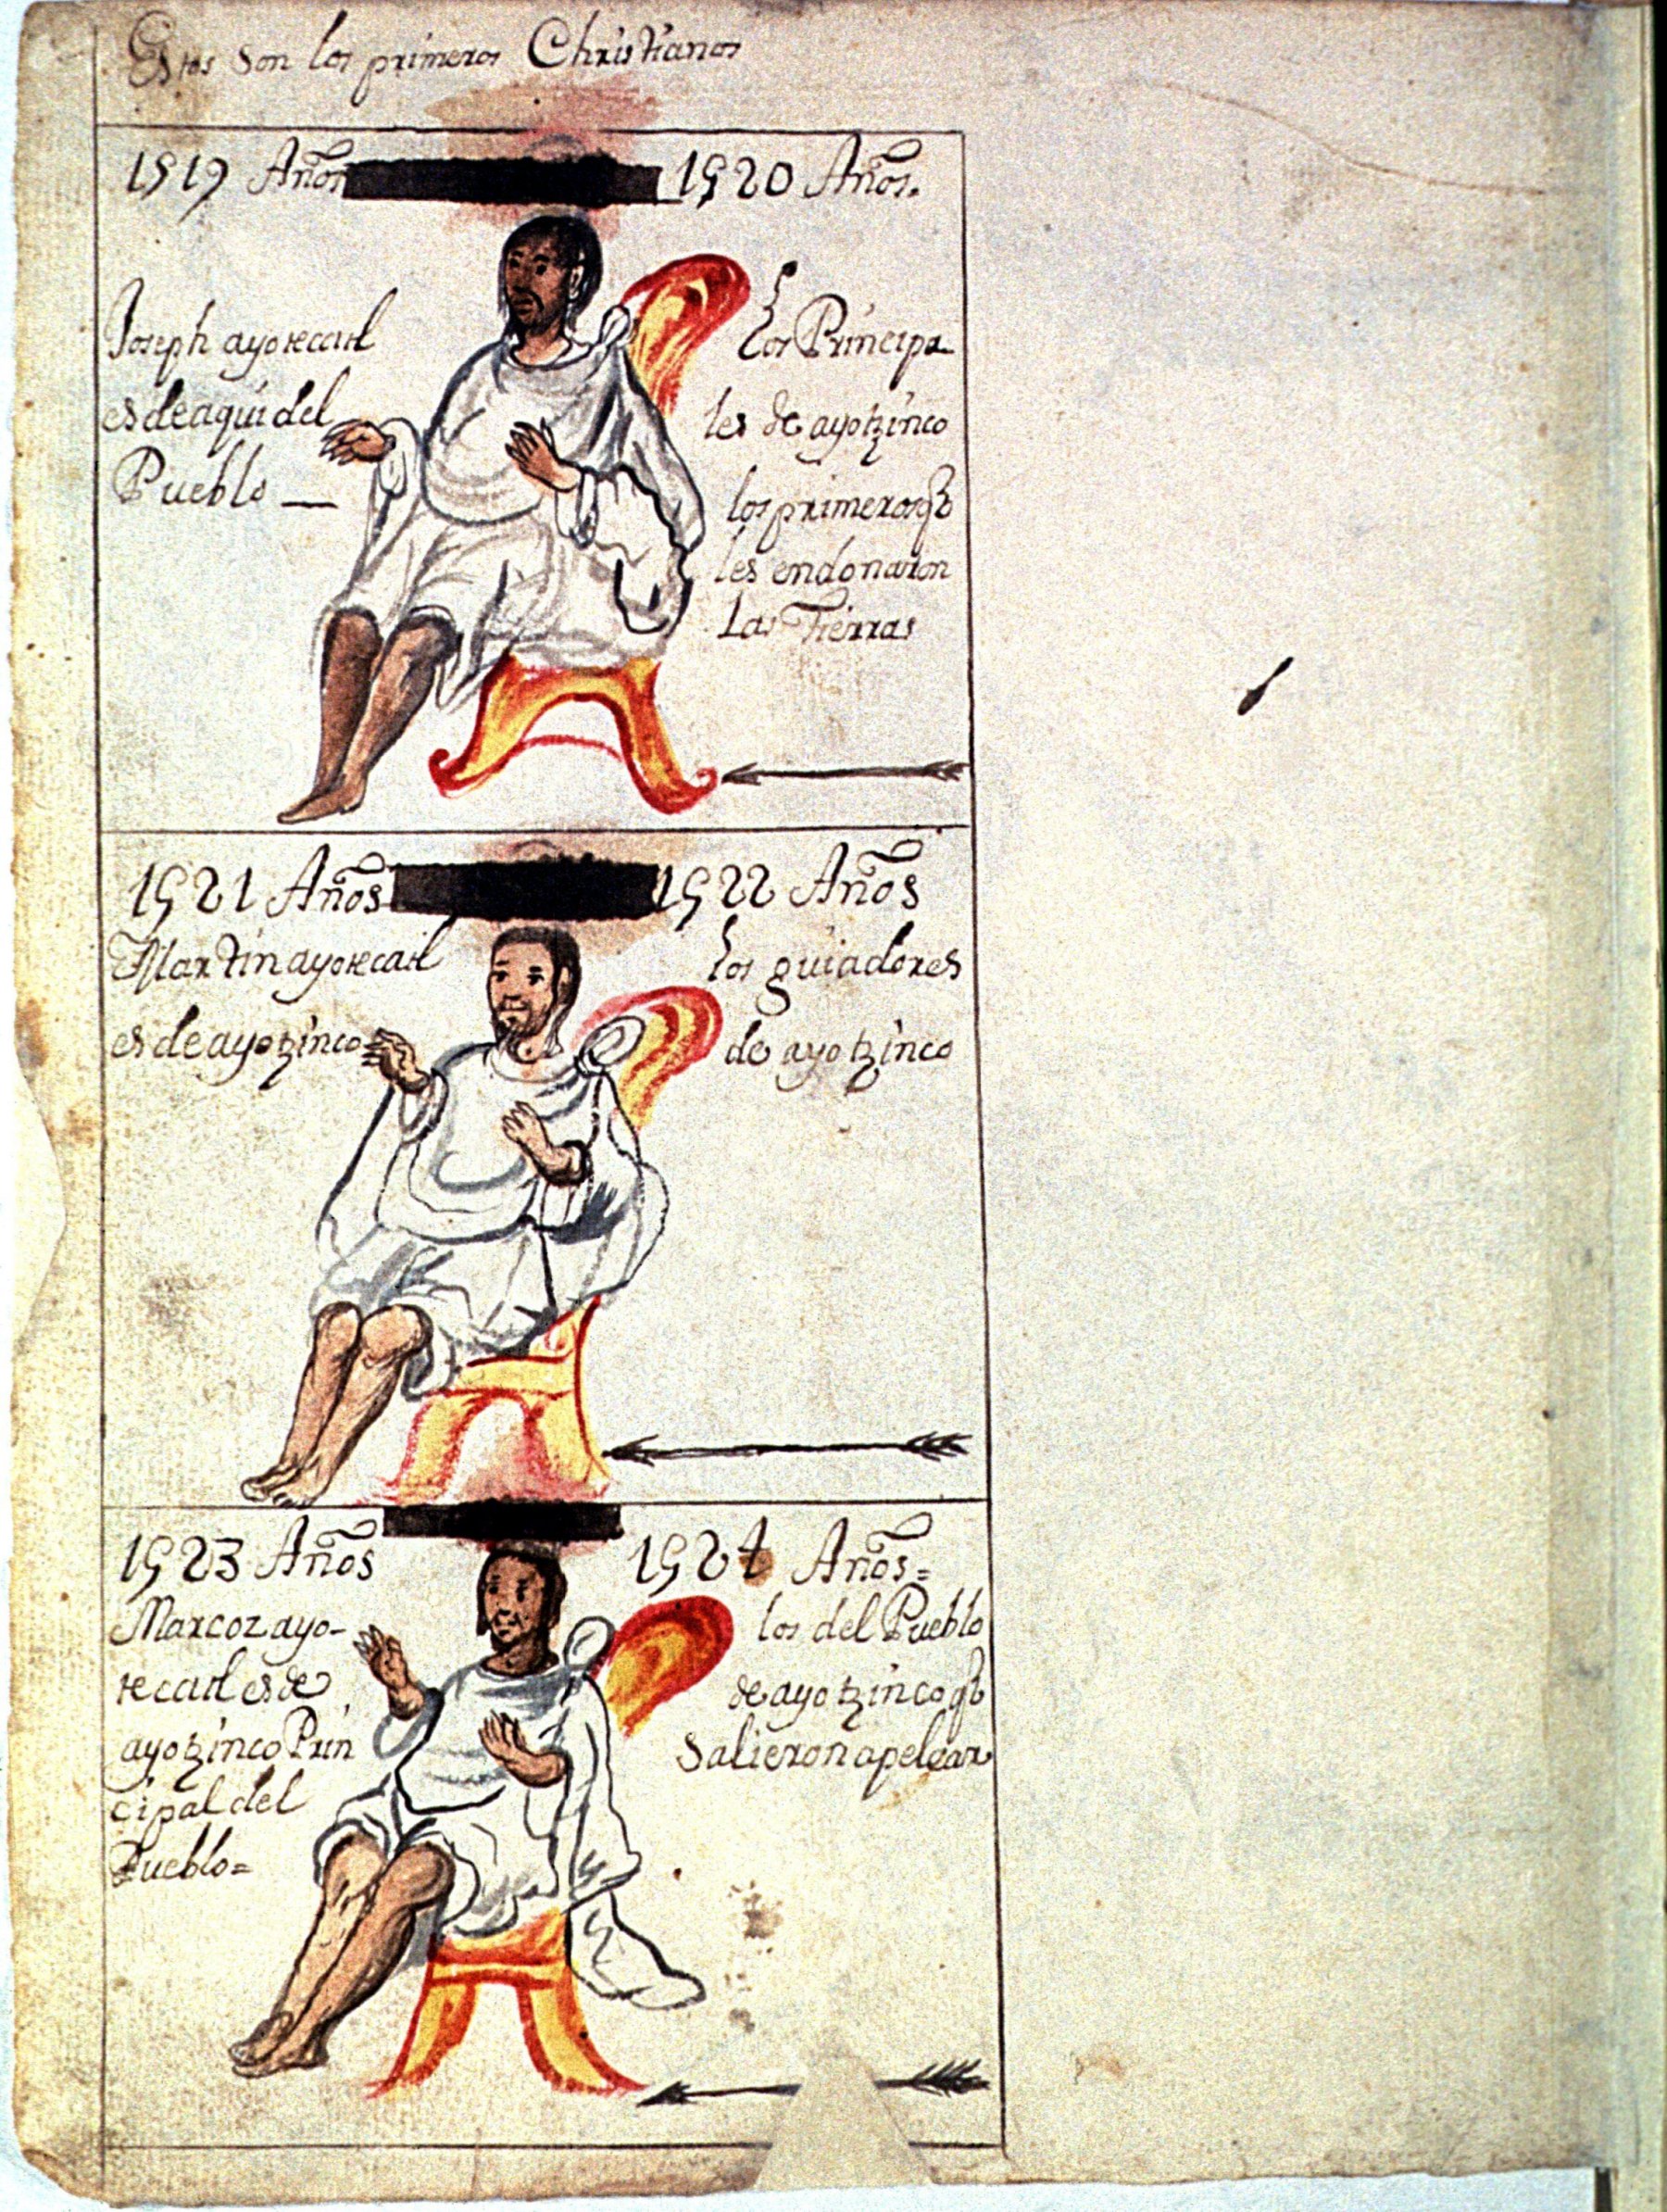 Estos son los primeros Christianos
1519 Años
1520 Años.
Joseph ayotecatl
es de aqui del
Pueblo —
los Principa
les de ayotzinco
los primeros q̃
les endonaron
las Tierras
1521 Años
1522 Años
Martin ayotecatl
es de ayotzinco=
los guiadores
de ayotzinco
1523 Años
1524 Años=
Marcoz ayo-
tecatl es de
ayotzinco Prin
cipal del
Pueblo=
los del Pueblo
de ayotzinco q̃
salieron apelear